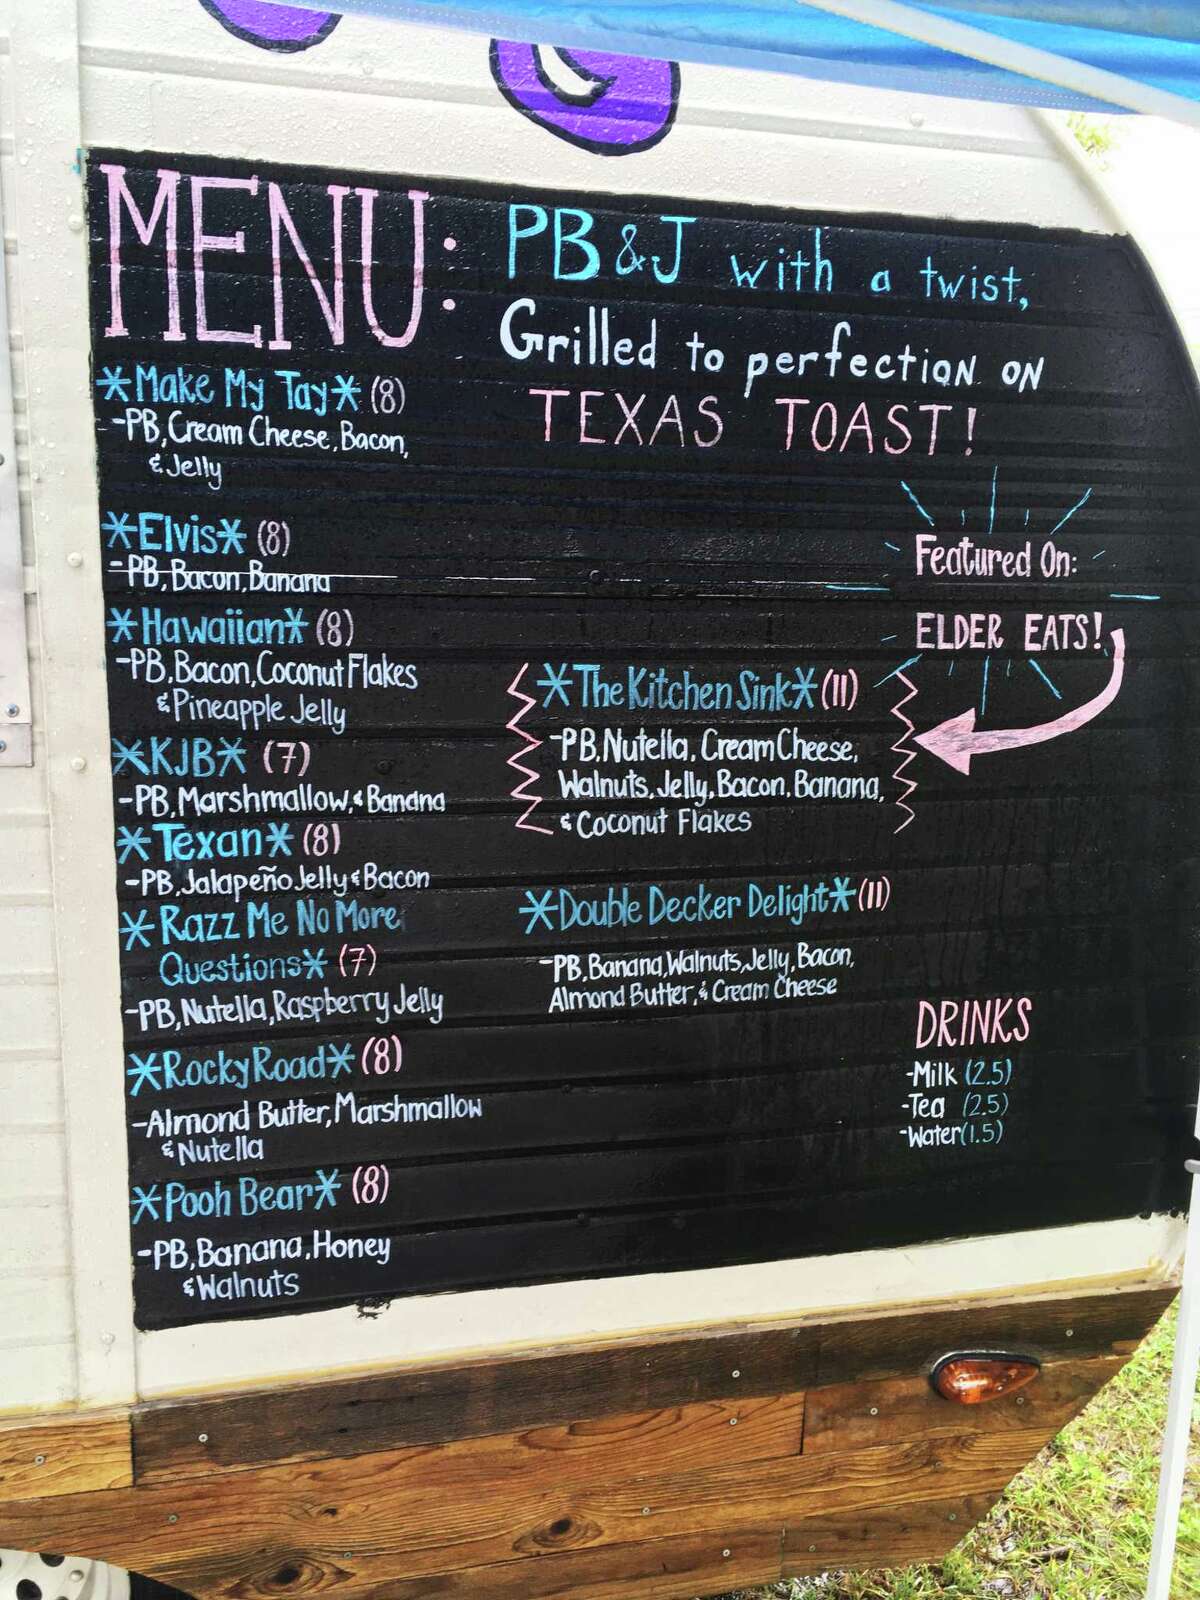 MENU:
PB&J with a twist,
Grilled to perfection on
TEXAS TOAST!
*Make My Tay* (8)
-PB, Cream Cheese, Bacon,
& Jelly
*Elvis* (8)
-PB, Bacon, Banana
*Hawaiian* (8)
-PB, Bacon, Coconut Flakes
& Pineapple Jelly
*KJB* (7)
-PB, Marshmallow, & Banana
*Texan* (8)
-PB, Jalapeño Jelly & Bacon
*Razz Me No More
Questions* (7)
-PB, Nutella, Raspberry Jelly
*Rocky Road* (8)
-Almond Butter, Marshmallow
& Nutella
*Pooh Bear* (8)
-PB, Banana, Honey
& Walnuts
Featured On:
ELDER EATS!
*The Kitchen Sink* (11)
-PB, Nutella, Cream Cheese,
Walnuts, Jelly, Bacon, Banana,
& Coconut Flakes
*Double Decker Delight* (11)
-PB, Banana, Walnuts, Jelly, Bacon,
Almond Butter, & Cream Cheese
DRINKS
-Milk (2.5)
-Tea (2.5)
-Water (1.5)